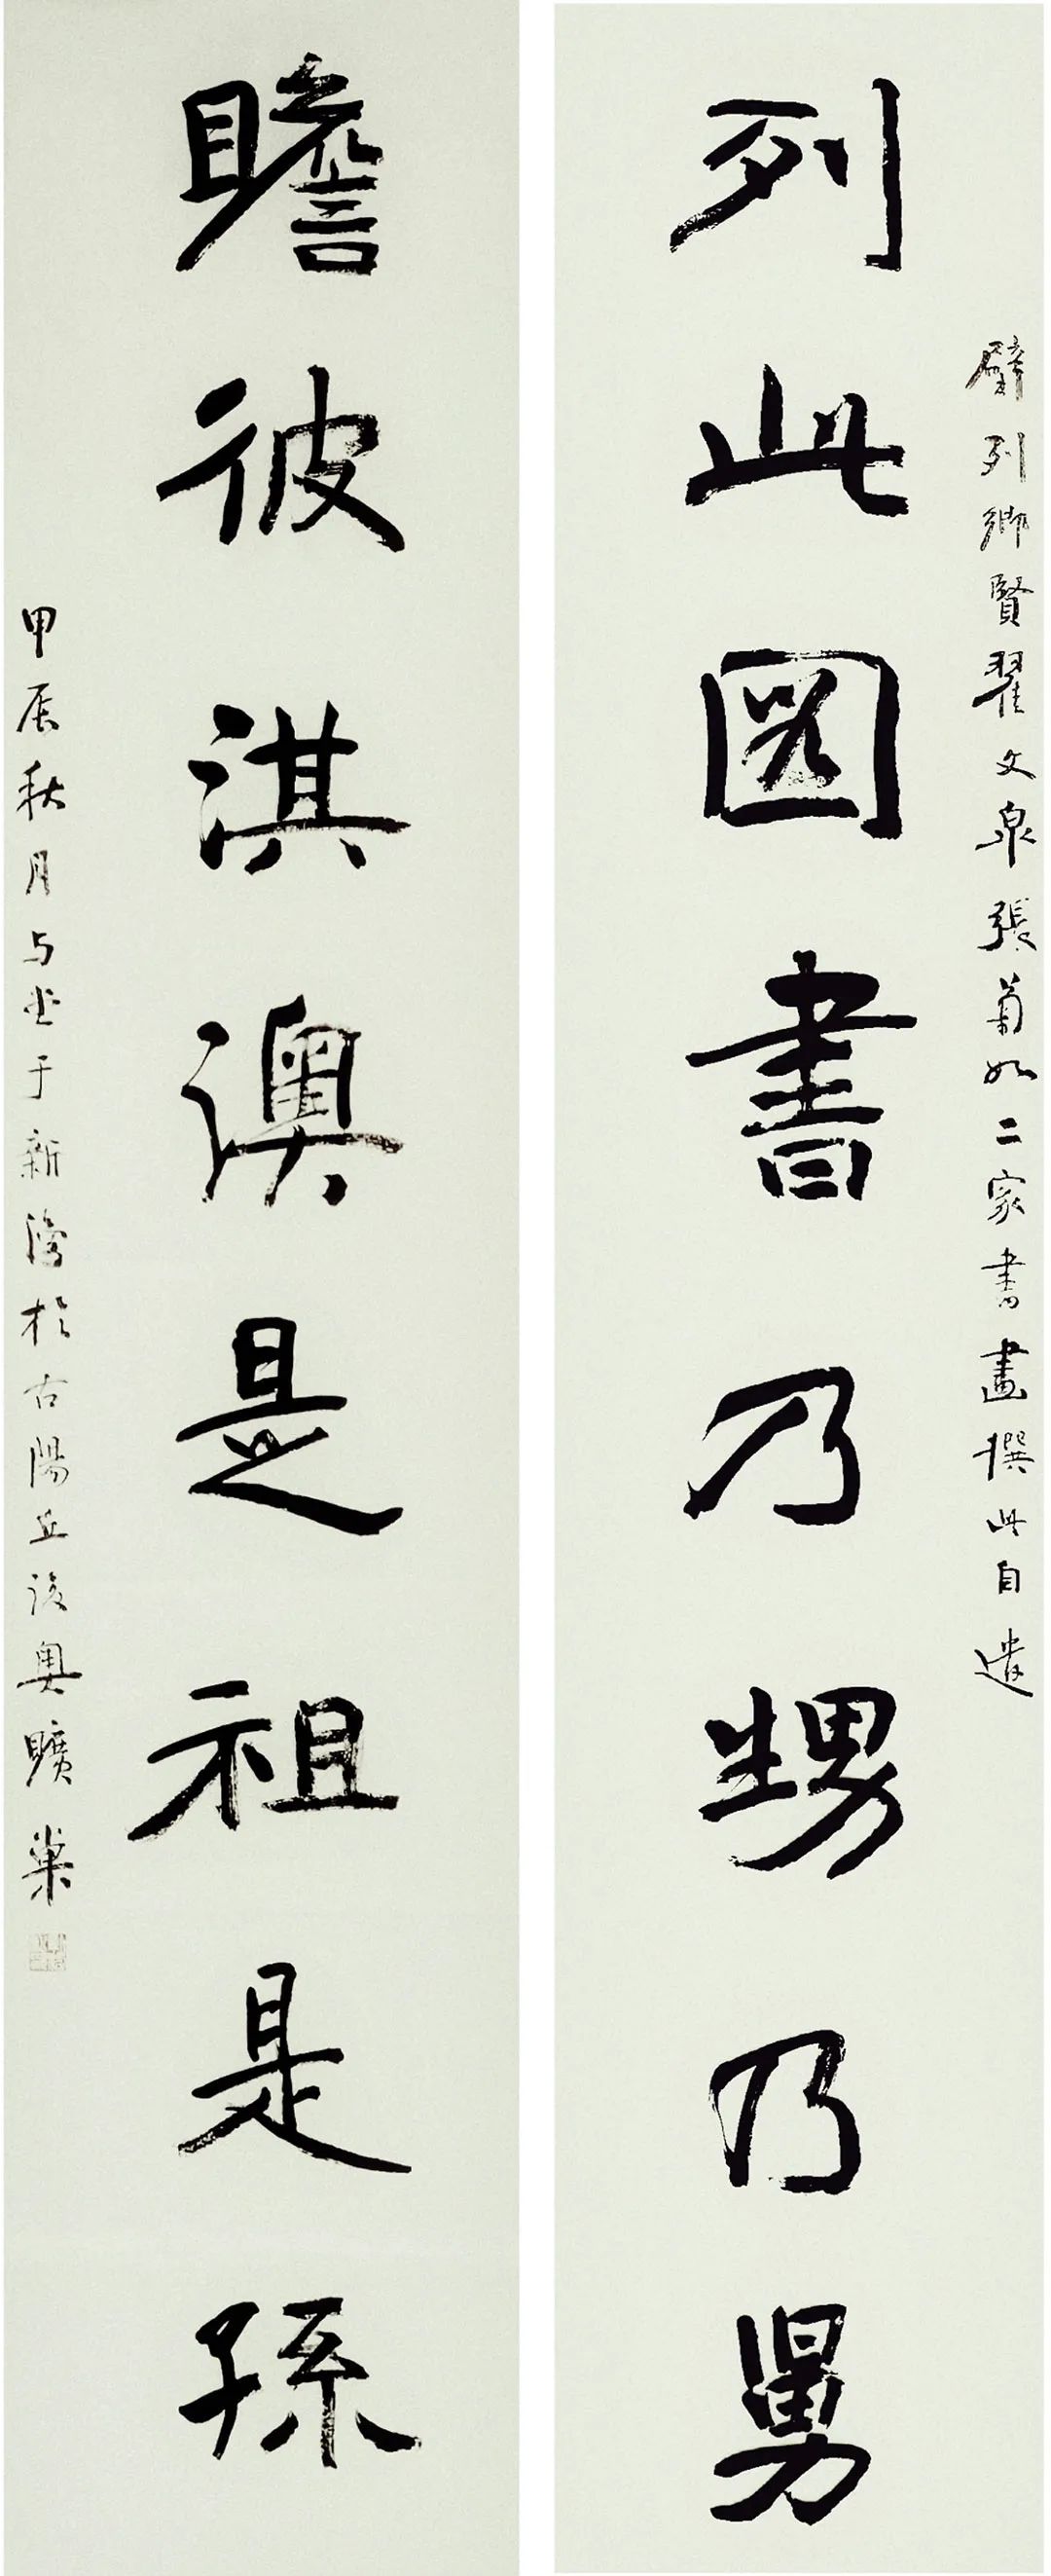 壁列鄉賢翟文泉張菊如二家書畫撰此自遣
列此圖書乃甥乃舅
瞻彼淇澳是祖是孫
甲辰秋月与于新於古陽丘奧曠巢